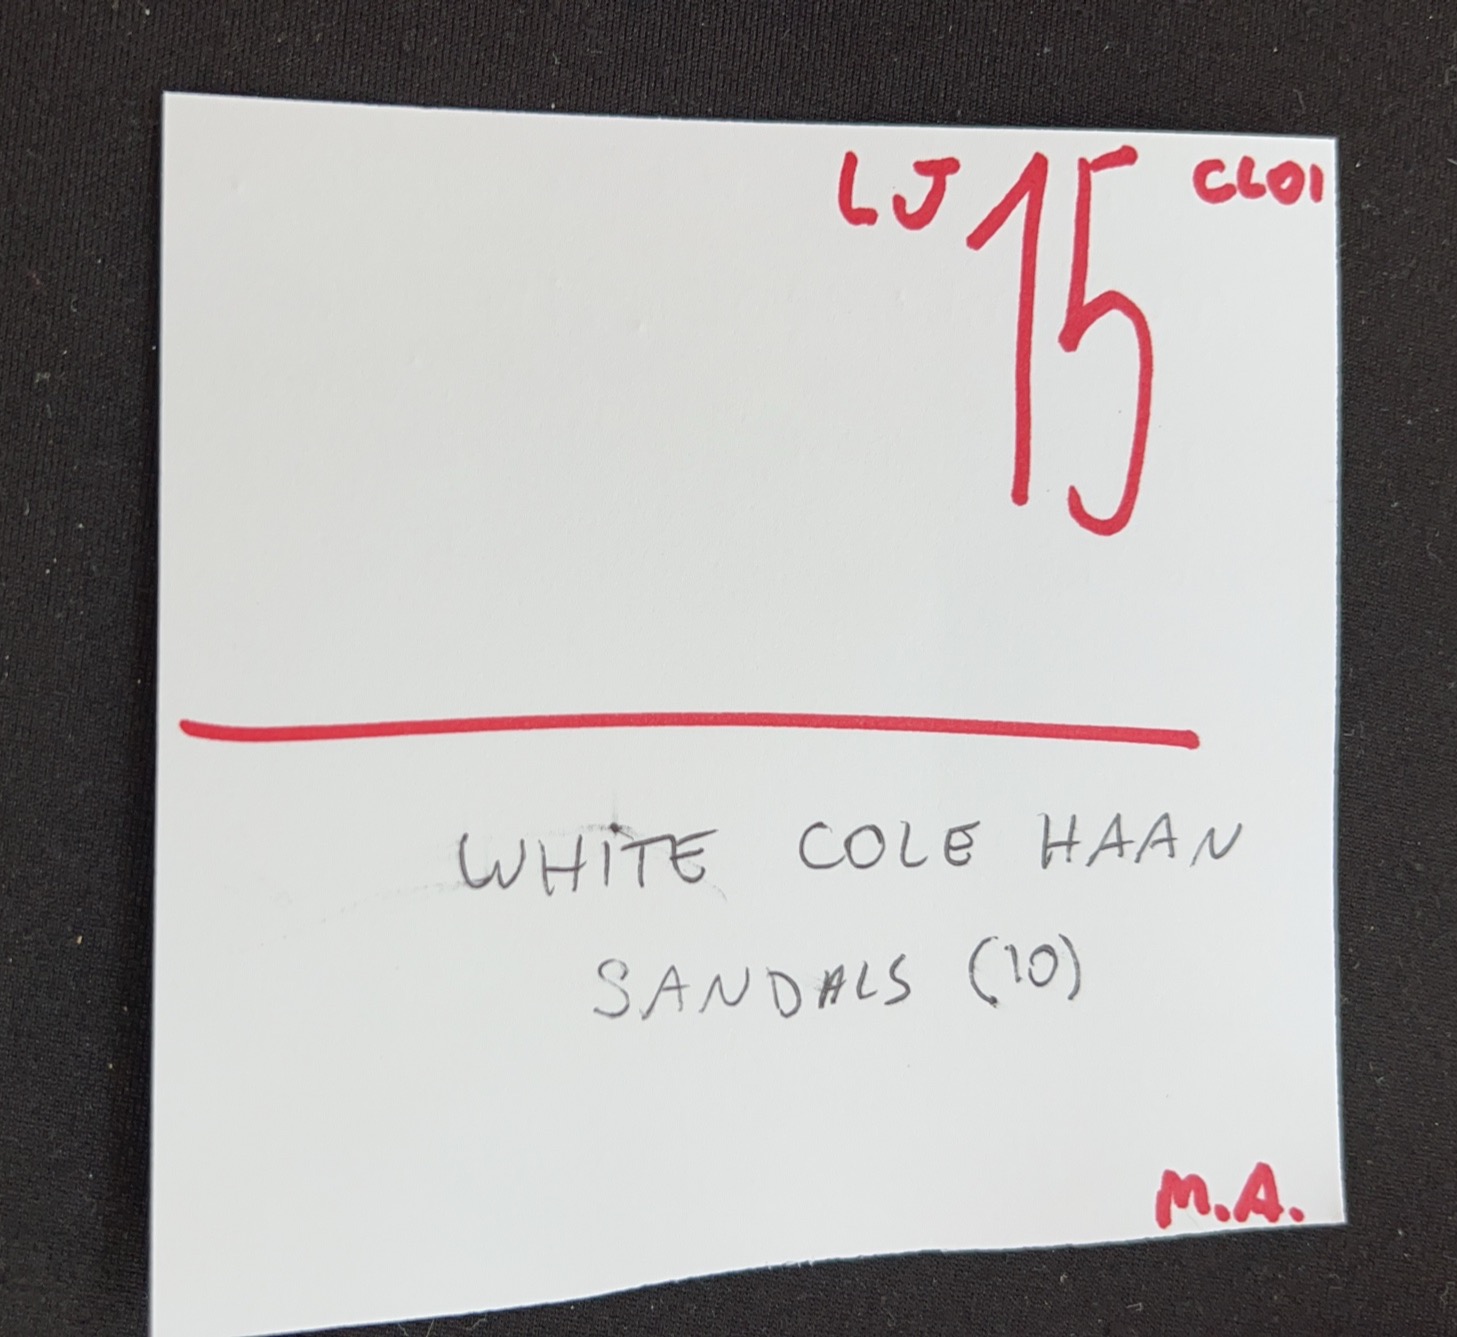 LJ 15 CL01
WHITE COLE HAAN
SANDALS (10)
M.A.